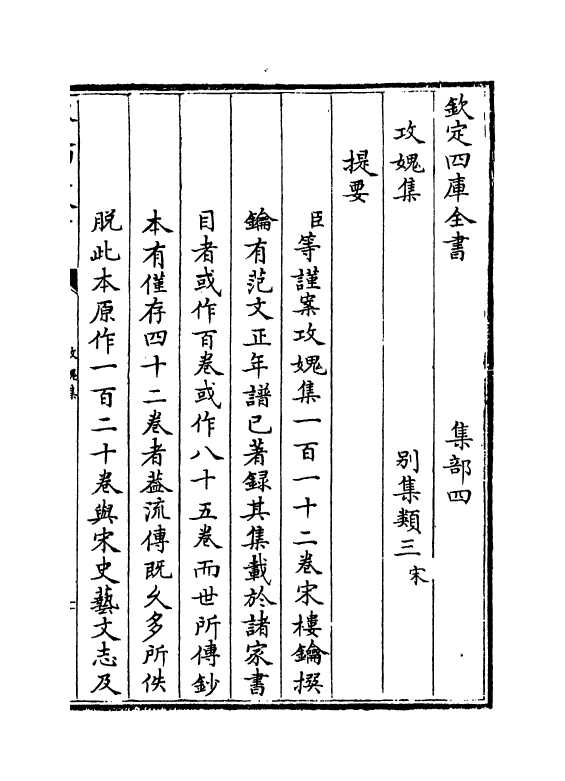 欽定四庫全書 集部四
攻媿集 別集類三 宋
提要
臣等謹案攻媿集一百一十二卷宋樓鑰撰
鑰有范文正年譜已著録其集載於諸家書
目者或作百卷或作八十五卷而世所傳鈔
本有僅存四十二卷者葢流傳既乆多所佚
脱此本原作一百二十卷與宋史藝文志及
攻媿集